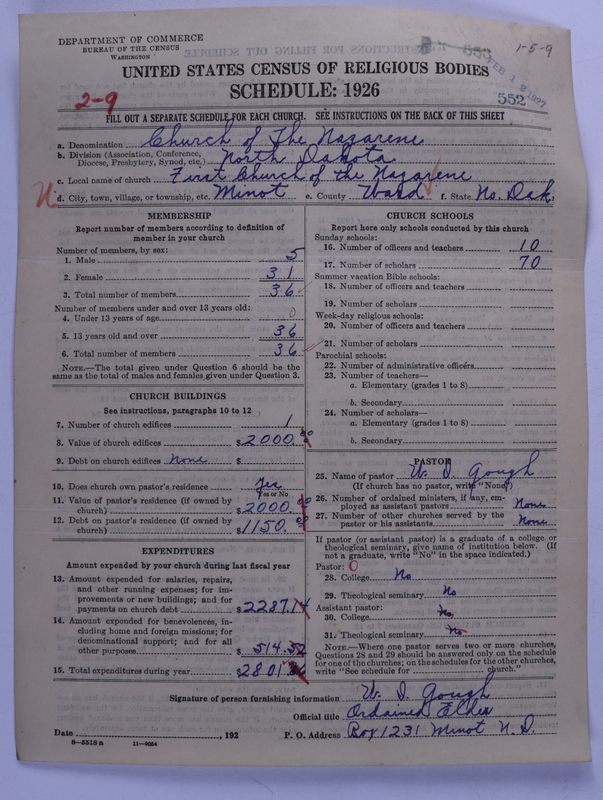 DEPARTMENT OF COMMERCE
BUREAU OF THE CENSUS
WASHINGTON
1-5-9
UNITED STATES CENSUS OF RELIGIOUS BODIES
FEB 12 1927
SCHEDULE: 1926
552
2-9
FILL OUT A SEPARATE SCHEDULE FOR EACH CHURCH. SEE INSTRUCTIONS ON THE BACK OF THIS SHEET
a. Denomination Church of The Nazarene
b. Division (Association, Conference, Diocese, Presbytery, Synod, etc.) North Dakota
c. Local name of church First Church of the Nazarene
d. City, town, village, or township, etc. Minot e. County Ward f. State No. Dak.
MEMBERSHIP
Report number of members according to definition of
member in your church
Number of members, by sex:
1. Male 5
2. Female 31
3. Total number of members 36
Number of members under and over 13 years old:
4. Under 13 years of age 0
5. 13 years old and over 36
6. Total number of members 36
NOTE.—The total given under Question 6 should be
same as the total of males and females given under Question 3.
CHURCH BUILDINGS
See instructions, paragraphs 10 to 12
7. Number of church edifices 1
8. Value of church edifices $2000.00
9. Debt on church edifices None $
10. Does church own pastor's residence Yes
Yes or No
11. Value of pastor's residence (if owned by
church) $2000.00
12. Debt on pastor's residence (if owned by
church) $1150.00
EXPENDITURES
Amount expended by your church during last fiscal year
13. Amount expended for salaries, repairs,
and other running expenses; for im-
provements or new buildings; and for
payments on church debt $2287.14
14. Amount expended for benevolences, in-
cluding home and foreign missions; for
denominational support; and for all
other purposes $514.52
15. Total expenditures during year $2801.66
CHURCH SCHOOLS
Report here only schools conducted by this church
Sunday schools:
16. Number of officers and teachers 10
17. Number of scholars 70
Summer vacation Bible schools:
18. Number of officers and teachers
19. Number of scholars
Week-day religious schools:
20. Number of officers and teachers
21. Number of scholars
Parochial schools:
22. Number of administrative officers
23. Number of teachers—
a. Elementary (grades 1 to 8)
b. Secondary
24. Number of scholars—
a. Elementary (grades 1 to 8)
b. Secondary
PASTOR
25. Name of pastor W. D. Gough
(If church has no pastor, write "None")
26. Number of ordained ministers, if any, em-
ployed as assistant pastors None
27. Number of other churches served by the
pastor or his assistants None
If pastor (or assistant pastor) is a graduate of a college or
theological seminary, give name of institution below. (If
not a graduate, write "No" in the space indicated.)
Pastor: 0
28. College No
29. Theological seminary No
Assistant pastor:
30. College No
31. Theological seminary No
NOTE.—Where one pastor serves two or more churches,
Questions 28 and 29 should be answered only on the schedule
for one of the churches; on the schedules for the other churches,
write "See schedule for church."
Signature of person furnishing information W. D. Gough
Official title Ordained Elder
Date , 192 P. O. Address Box 1231 Minot N. D.
8—5518 a 11—9054